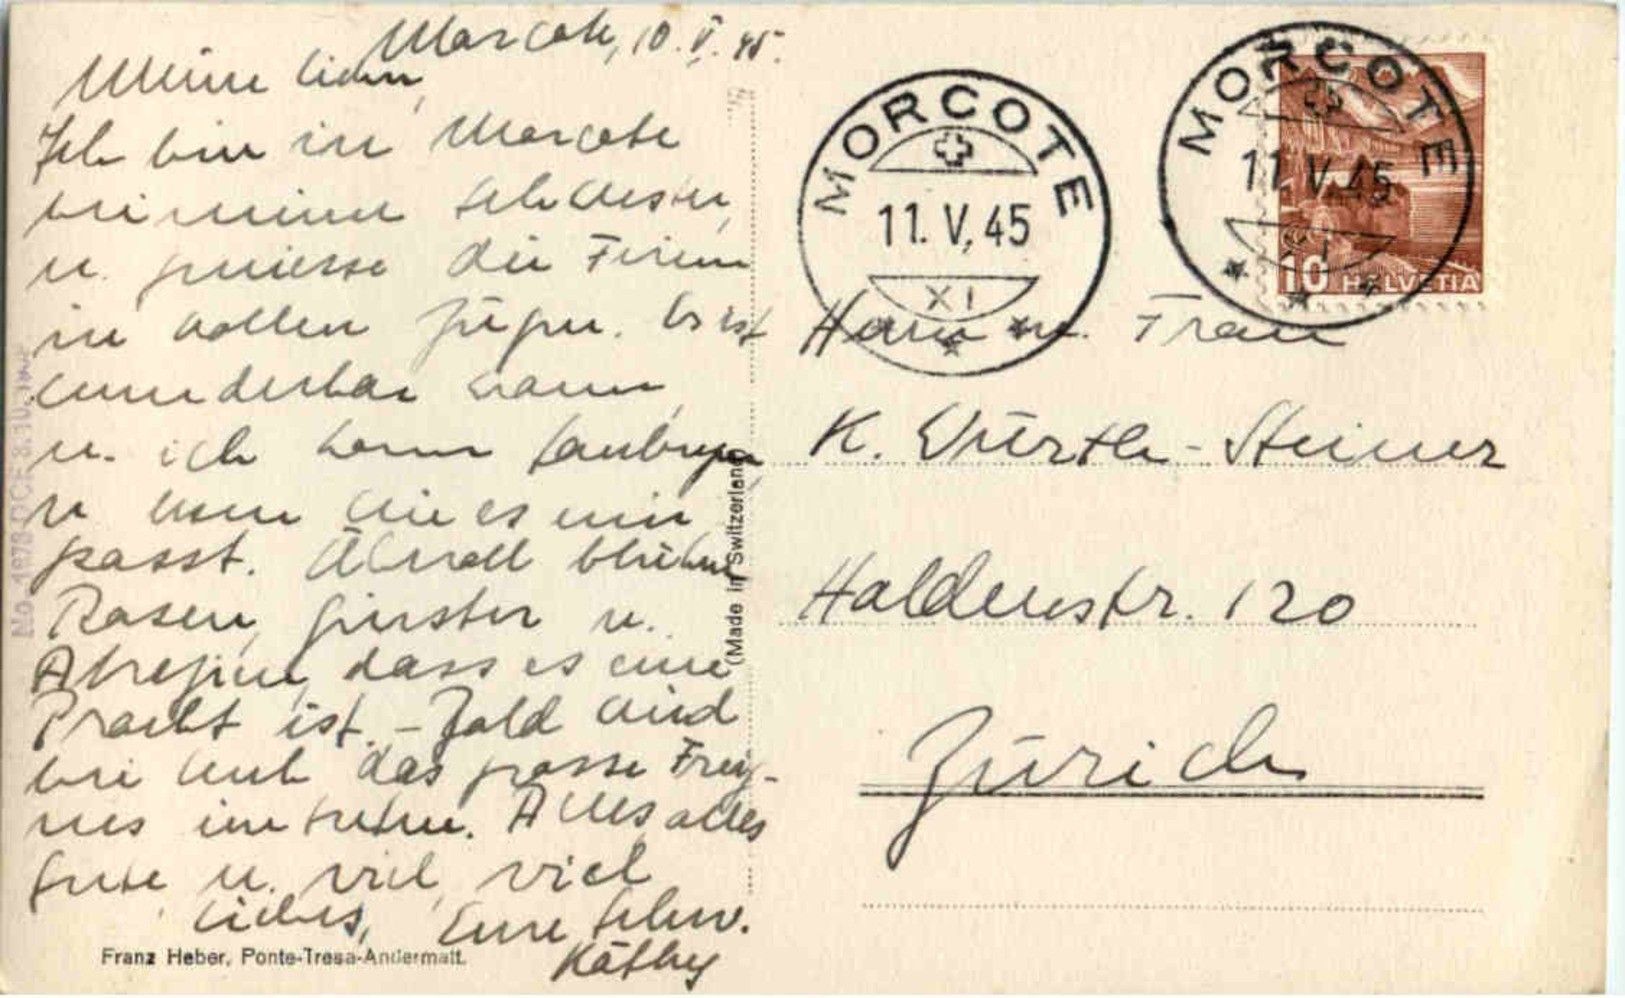 Morcote, 10. V. 45.
Meine Lieben,
Ich bin in Morcote
bei meiner Schwester,
u. geniesse die Ferien
in vollen Zügen. Es ist
wunderbar warm
u. ich kann
u. wie es mir
passt. Überall blühen
Rosen, Ginster u.
dass es eine
Pracht ist. - Bald wird
bei Euch das grosse Ereig-
nis eintreten. Alles, alles
Gute u. viel, viel
Liebes, Eure Schw.
Käthy
Franz Heber, Ponte-Tresa-Andermatt.
(Made in Switzerland)
MORCOTE
11. V. 45
XI
MORCOTE
11. V. 45
10 HELVETIA
Herrn u. Frau
K. Würthle-Steiner
Haldenstr. 120
Zürich